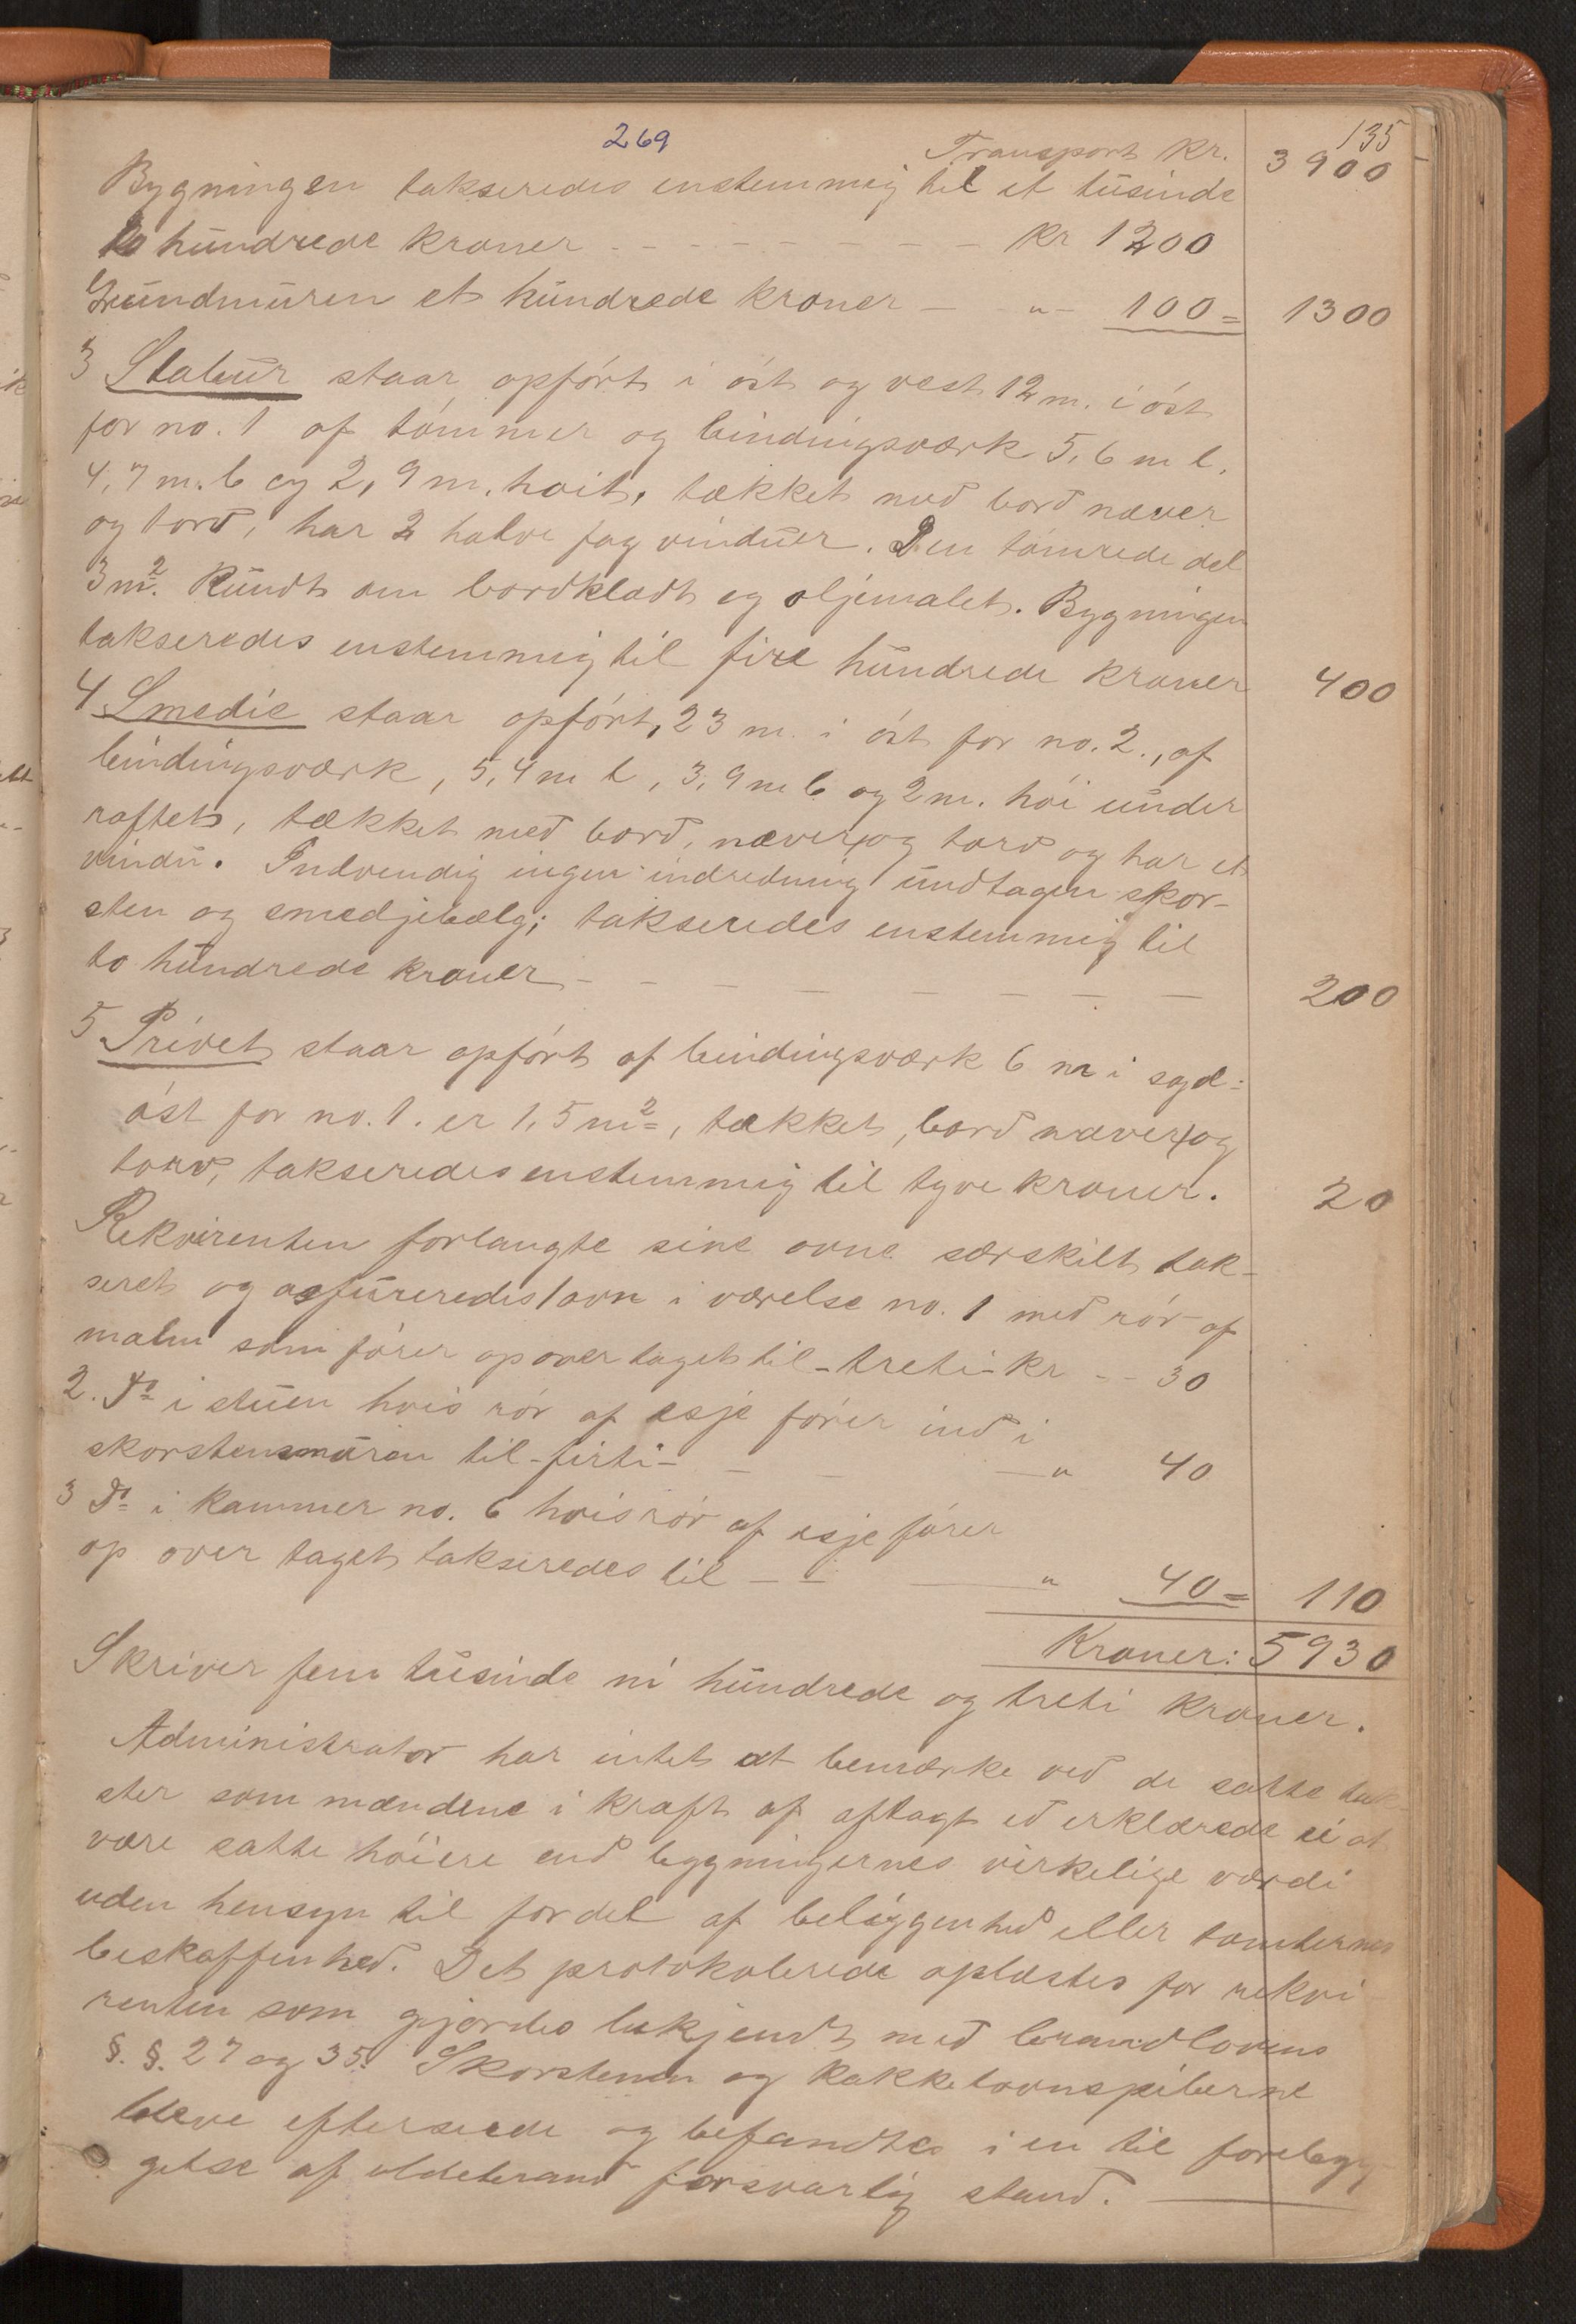 269
135
Transport kr. 3900
Bygningen takseredes enstemmig til et tusinde
to hundrede kroner - - - - - - - kr 1200
Grundmuren et hundrede kroner - " - 100 = 1300
3 Stabur staar opført i øst og vest 12 m. i øst
for no. 1 af tømmer og bindingsværk 5,6 m l.
4,7 m. b og 2,9 m. høit, tækket med bord næver
og torv, har 2 halve fag vinduer. Den tømrede del
3 m². Rundt om bordklædt og oljemalet. Bygningen
takseredes enstemmig til fire hundrede kroner 400
4 Smedie staar opført, 23 m. i øst for no. 2., af
bindingsværk, 5,4 m l, 3,9 m b og 2 m. høi under
raftet, tækket med bord, næver og torv og har et
vindu. Indvendig ingen indredning undtagen skor-
sten og smedjebælg; takseredes enstemmig til
to hundrede kroner - - - - - - - - 200
5 Privet staar opført af bindingsværk 6 m i syd-
øst for no. 1. er 1,5 m², tækket, bord næver og
torv, takseredes enstemmig til tyve kroner. 20
Rekvirenten forlangte sine ovne særskilt tak-
seret og 1 ovn i værelse no. 1 med rør af
malm som fører op over taget til - treti - kr - - 30
2. Do i stuen hvis rør af esje fører ind i
skorstensmuren til - firti - - - " 40
3 Do i kammer no. 6 hvis rør af esje fører
op over taget takseredes til - - - " 40 = 110
Kroner: 5930
Skriver fem tusinde ni hundrede og treti kroner.
Administrator har intet at bemærke ved de satte tak-
ster som mændene i kraft af aflagt ed erklærede ei at
være satte høiere end bygningernes virkelige værdi
uden hensyn til fordel af beliggenhed eller tomternes
beskaffenhed. Det protokolerede oplæstes for rekvi
renten som gjordes bekjendt med brandlovens
§. §. 27 og 35. Skorstenen og kakkelovnspiberne
bleve efterseede og befandtes i en til forebyg-
gelse af ildebrand forsvarlig stand.